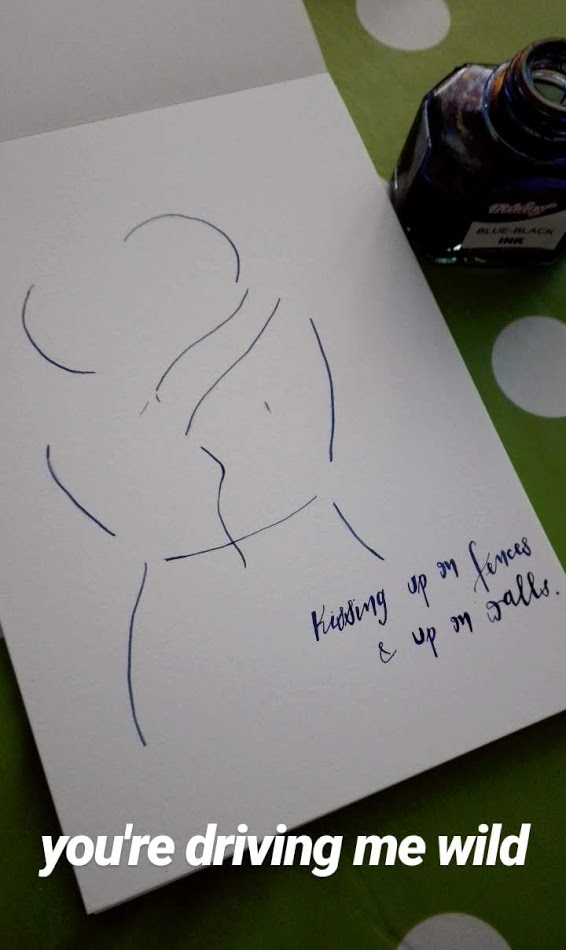 BLUE-BLACK
INK
Kissing up on fences
& up on walls.
you're driving me wild